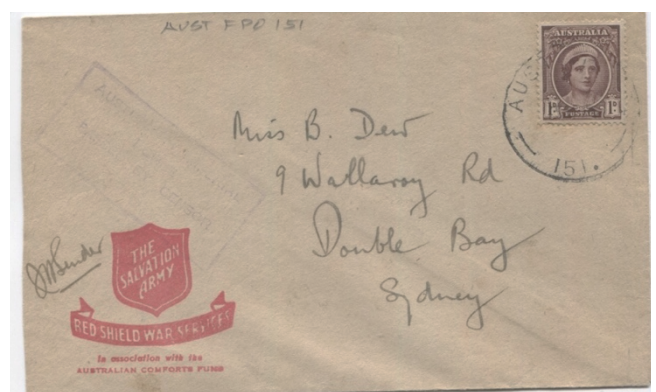 AUST FPO 151
AUSTRALIA
1D 1D
POSTAGE
AUS
151.
Miss B. Dew
9 Wallaroy Rd
Double Bay
Sydney
THE
SALVATION
ARMY
RED SHIELD WAR SERVICES
In association with the
AUSTRALIAN COMFORTS FUND